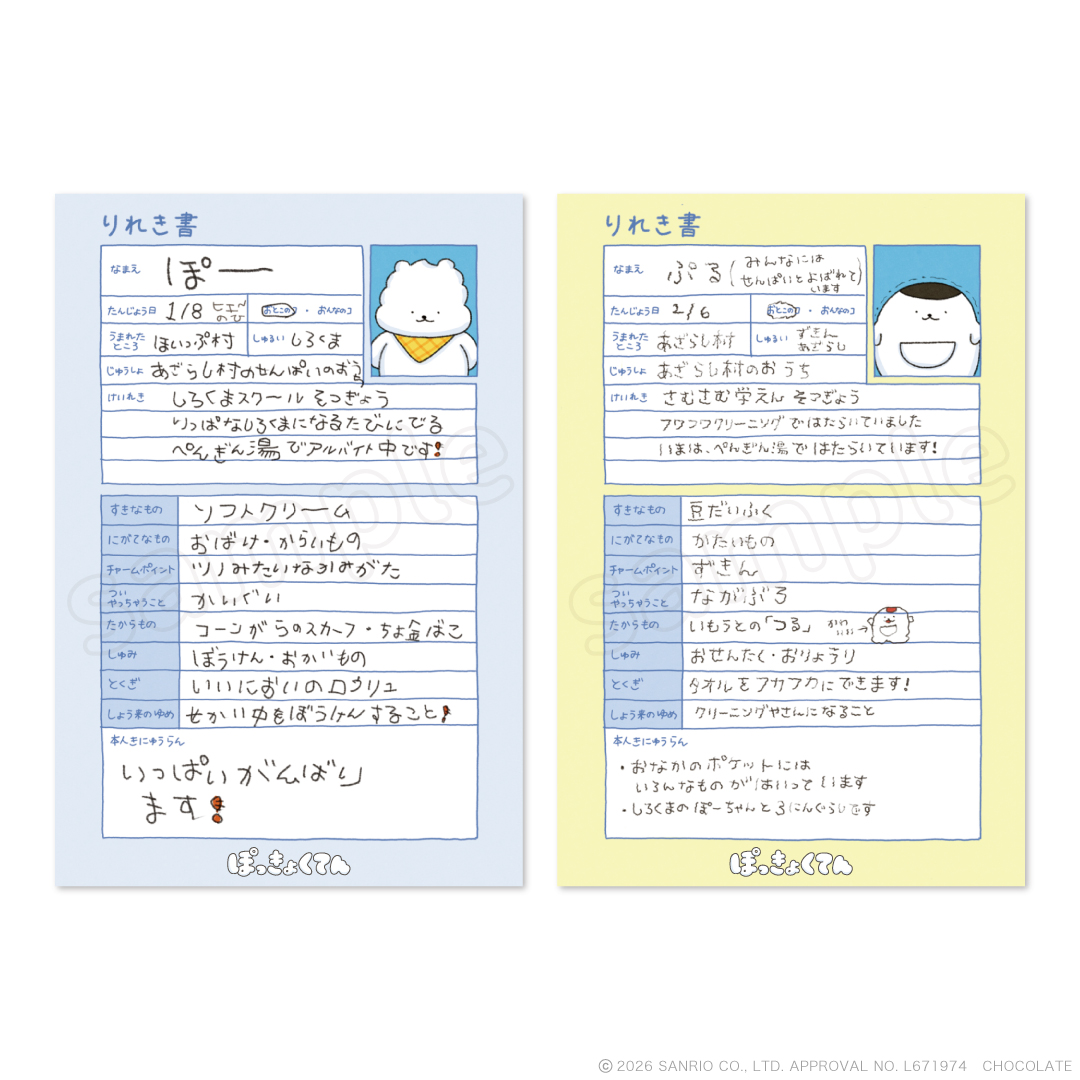 りれき書
なまえ ぽー
たんじょう日 1/8 ヒエ〜のひ おとこのコ・おんなのコ
うまれたところ ほいっぷ村 しゅるい しろくま
じゅうしょ あざらし村のせんぱいのおうち
けいれき しろくまスクール そつぎょう
りっぱなしろくまになるたびにでる
ぺんぎん湯でアルバイト中です!
すきなもの ソフトクリーム
にがてなもの おばけ・からいもの
チャームポイント ツノみたいなかみがた
ついやっちゃうこと かいぐい
たからもの コーンがらのスカーフ・ちょ金ばこ
しゅみ ぼうけん・おかいもの
とくぎ いいにおいのロウリュ
しょう来のゆめ せかい中をぼうけんすること!
本人きにゅうらん
いっぱいがんばり
ます!
ぽっきょくてん
りれき書
なまえ ぷる(みんなには
せんぱいとよばれて
います)
たんじょう日 2/6 おとこのコ・おんなのコ
うまれたところ あざらし村 しゅるい ずきんあざらし
じゅうしょ あざらし村のおうち
けいれき さむさむ学えん そつぎょう
フワフワクリーニングではたらいていました
いまは、ぺんぎん湯ではたらいています!
すきなもの 豆だいふく
にがてなもの かたいもの
チャームポイント ずきん
ついやっちゃうこと ながぶろ
たからもの いもうとの「つる」
しゅみ おせんたく・おりょうり
とくぎ タオルをフカフカにできます!
しょう来のゆめ クリーニングやさんになること
本人きにゅうらん
・おなかのポケットには
いろんなものがはいっています
・しろくまのぽーちゃんと3にんぐらしです
ぽっきょくてん
sample
sample
©2026 SANRIO CO., LTD. APPROVAL NO. L671974 CHOCOLATE